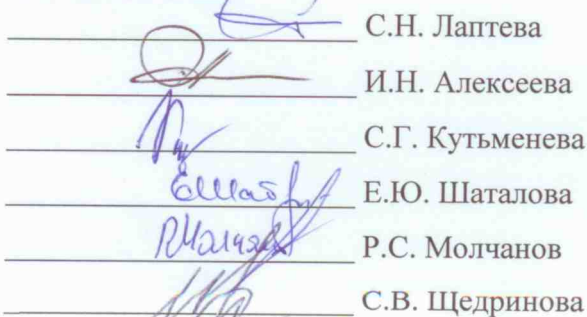 С.Н. Лаптева
И.Н. Алексеева
С.Г. Кутьменева
Е.Ю. Шаталова
Р.С. Молчанов
С.В. Щедринова